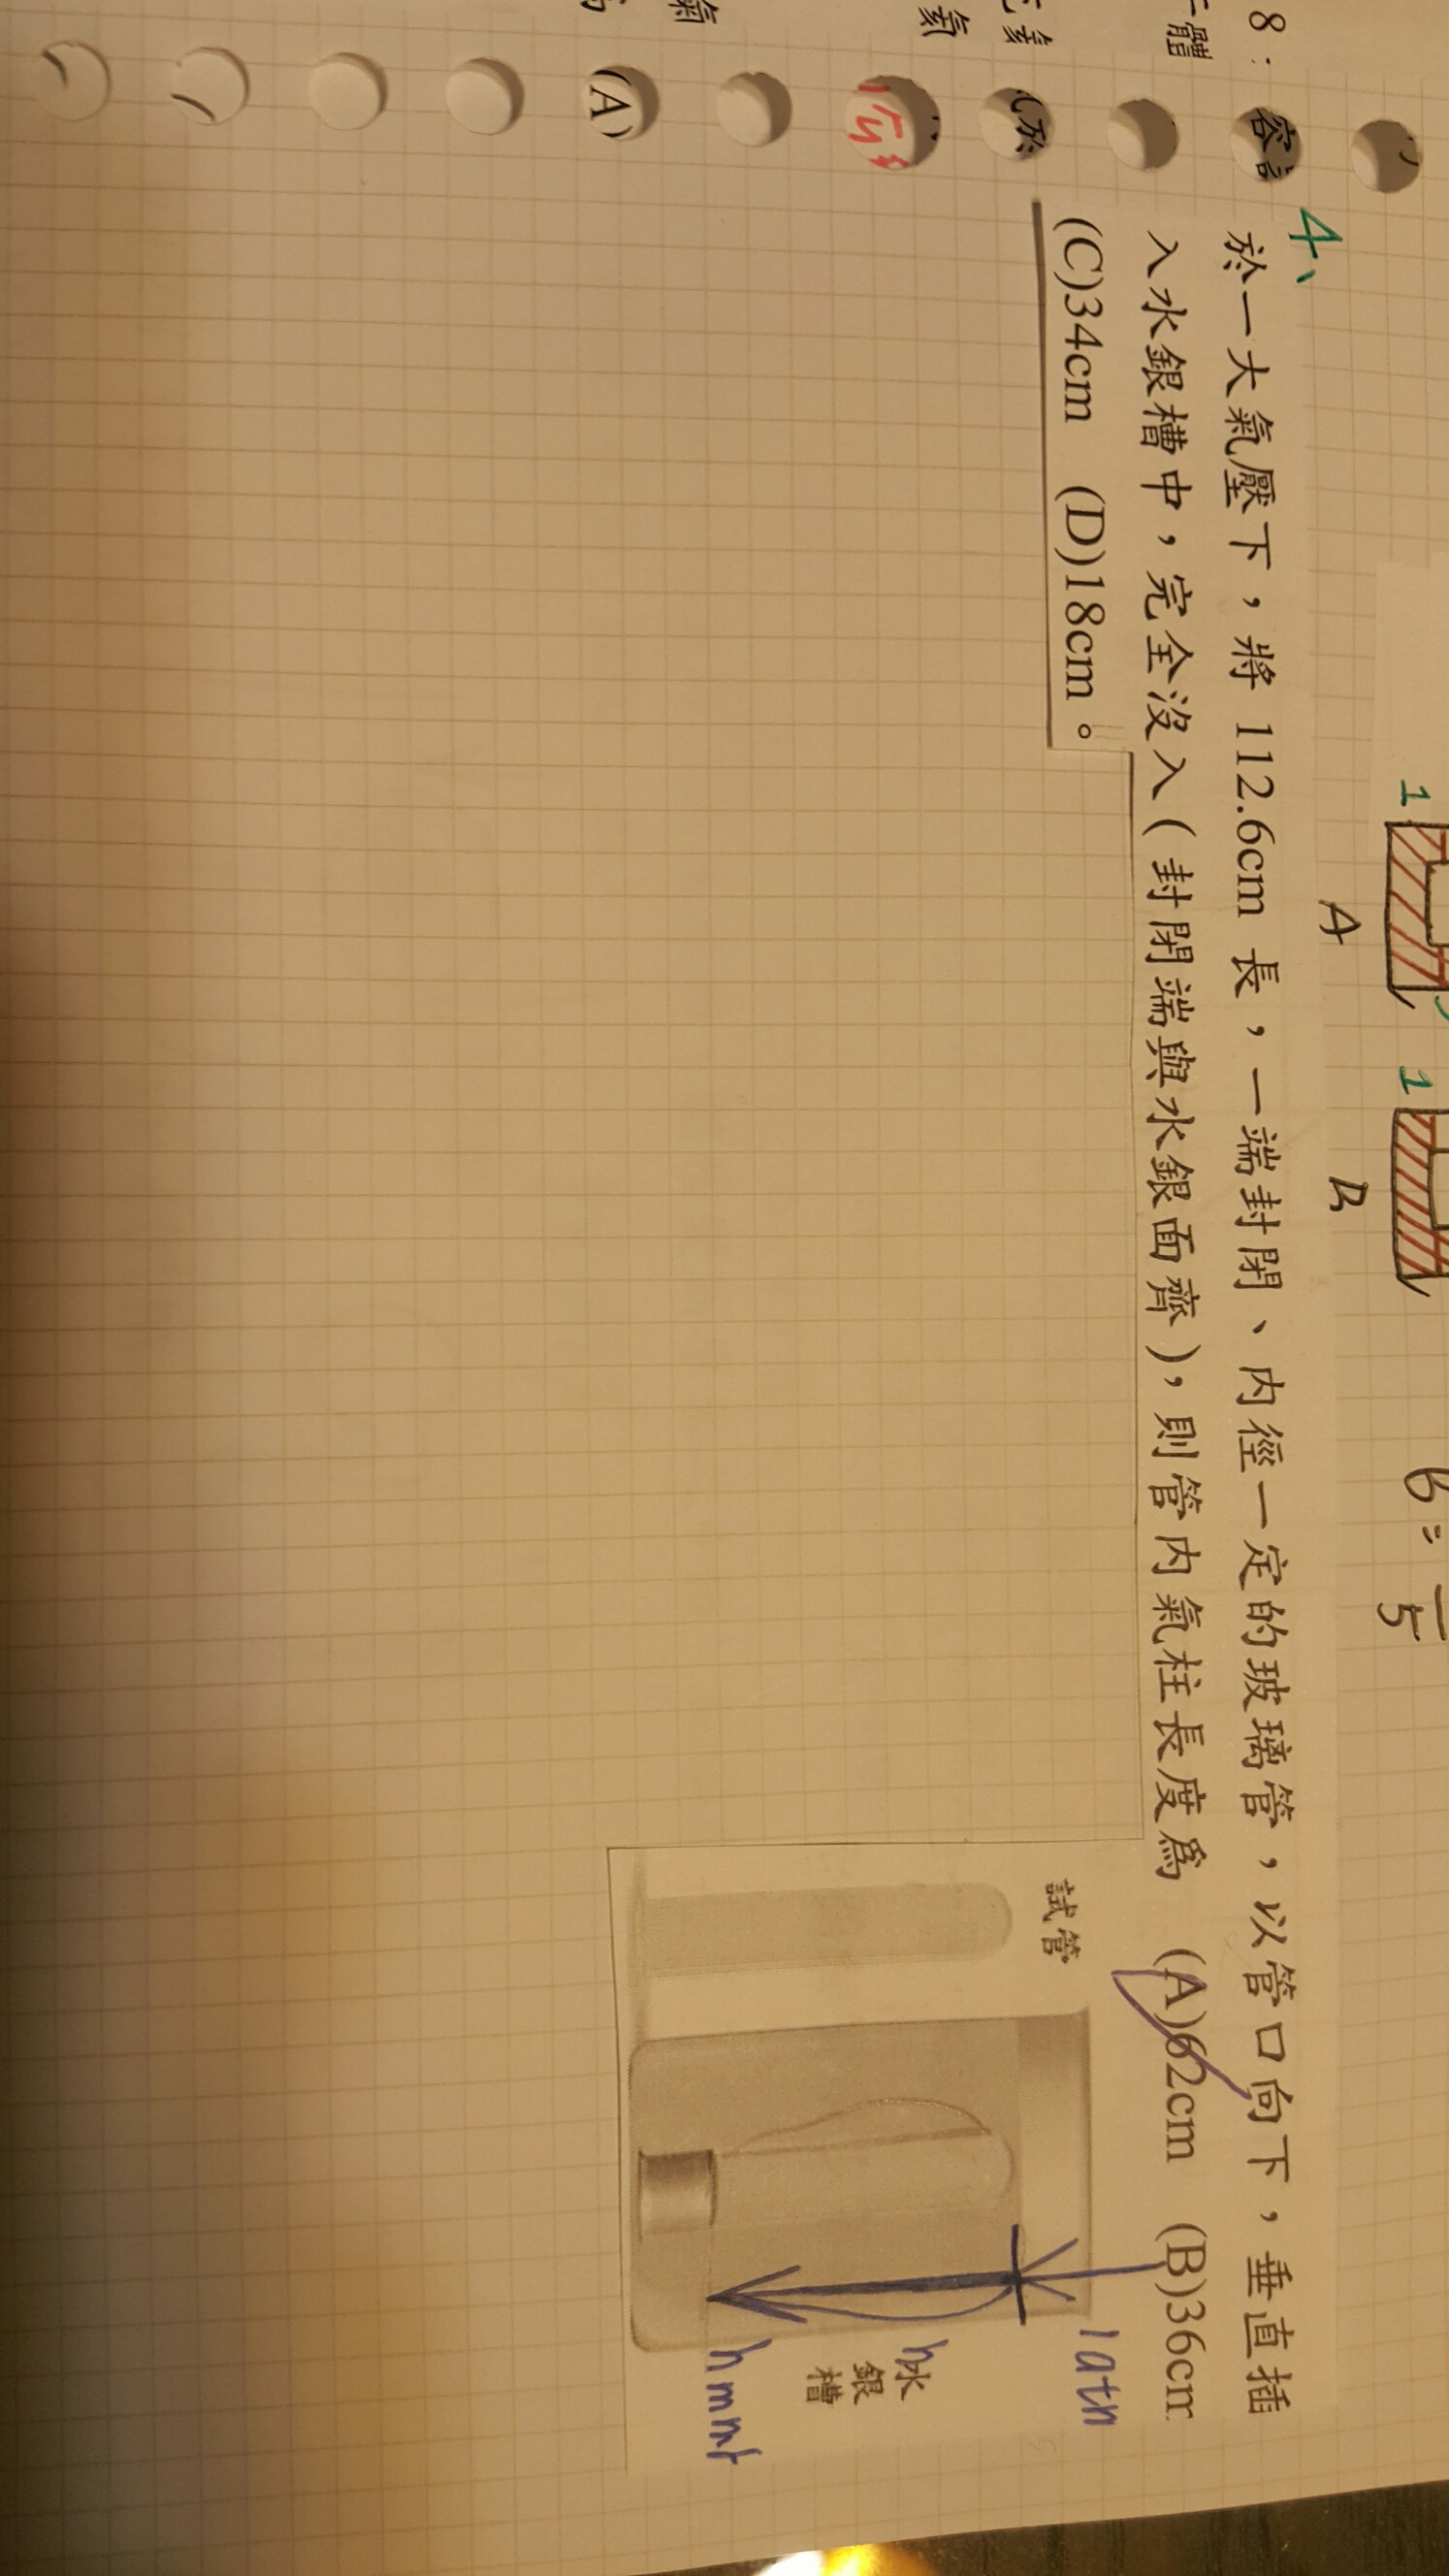 8：
容
於
(A)
1
1
A
B
B=
5
4、
於一大氣壓下，將 112.6cm 長，一端封閉、內徑一定的玻璃管，以管口向下，垂直插
入水銀槽中，完全沒入（封閉端與水銀面齊），則管內氣柱長度爲　(A)62cm　(B)36cm
(C)34cm　(D)18cm。
試管
1atm
h
水
銀
槽